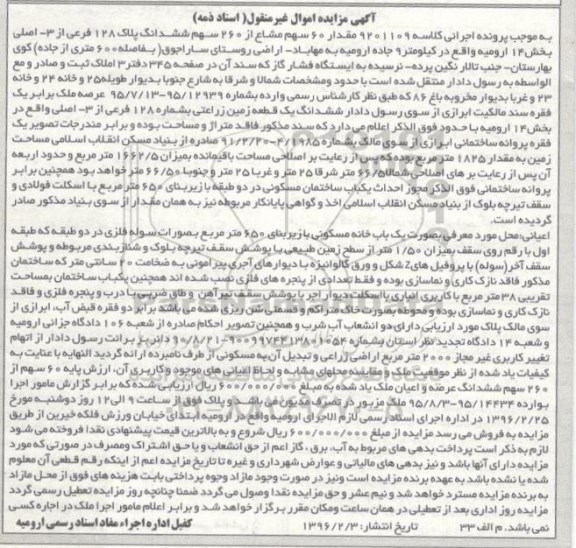 آگهی مزایده اموال غیرمنقول( اسناد ذمه)
به موجب پرونده اجرائی کلاسه ۹۲۰۱۱۰۹ مقدار ۶۰ سهم مشاع از ۲۶۰ سهم ششدانگ پلاک ۱۲۸ فرعی از ۳- اصلی
بخش۱۴ ارومیه واقع در کیلومتر۹ جاده ارومیه به مهاباد- اراضی روستای ساراجوق( بفاصله ۶۰۰ متری از جاده) کوی
بهارستان- جنب تالار نگین پرده- نرسیده به ایستگاه فشار گاز که سند آن در صفحه ۳۴۵ دفتر۳ املاک ثبت و صادر و مع
الواسطه به رسول دادار منتقل شده است با حدود ومشخصات شمالا و شرقا به شارع جنوبا بدیوار طویله۲۵ و خانه ۲۴ و خانه
۲۳ و غربا بدیوار مخروبه باغ ۸۶ که طبق نظر کارشناس رسمی وارده بشماره ۹۵/۱۲۹۳۹-۹۵/۷/۱۳ عرصه ملک برابر یک
فقره سند مالکیت ابرازی از سوی رسول دادار ششدانگ یک قطعه زمین زراعتی بشماره ۱۲۸ فرعی از ۳- اصلی واقع در
بخش۱۴ ارومیه با حدود فوق الذکر اعلام می دارد که سند مذکور فاقد متراژ و مساحت بوده و برابر مندرجات تصویر یک
فقره پروانه ساختمانی ابرازی از سوی مالک بشماره ۴/۱۹۸۵-۹۱/۲/۲۰ صادره از بنیاد مسکن انقلاب اسلامی مساحت
زمین به مقدار ۱۸۲۵ متر مربع بوده که پس از رعایت بر اصلاحی مساحت باقیمانده بمیزان ۱۶۶۲/۵ متر مربع و حدود اربعه
آن پس از رعایت بر های اصلاحی شمالا۶۶/۵ متر شرقا ۲۵ متر و غربا ۲۵ متر و جنوبا ۶۶/۵۰ متر خواهد بود همچنین برابر
پروانه ساختمانی فوق الذکر مجوز احداث یکباب ساختمان مسکونی در دو طبقه با زیربنای ۶۵۰ متر مربع با اسکلت فولادی و
سقف تیرچه بلوک از بنیاد مسکن انقلاب اسلامی اخذ و گواهی پایانکار مربوطه نیز به همان مقدار از سوی بنیاد مذکور صادر
گردیده است.
اعیانی: محل مورد معرفی بصورت یک باب خانه مسکونی با زیربنای ۶۵۰ متر مربع بصورات سوله فلزی در دو طبقه که طبقه
اول با رقم روی سقف بمیزان ۱/۵۰ متر از سطح زمین طبیعی با پوشش سقف تیرچه بلوک و شناژبندی مربوطه و پوشش
سقف آخر(سوله) با پروفیل های Z شکل و ورق گالوانیزه با دیوارهای آجری پیرامونی به ضخامت ۲۰ سانتی متر که ساختمان
مذکور فاقد نازک کاری و نماسازی بوده و فقط تعدادی از پنجره های فلزی نصب شده اند همچنین یکباب ساختمان بمساحت
تقریبی ۳۸ متر مربع با کاربری انباری با اسکلت دیوار آجر با پوشش سقف تیرآهن و طاق ضربی با درب و پنجره فلزی و فاقد
نازک کاری و نماسازی بوده و محوطه بصورت خاک متراکم و قسمتی شن ریزی شده می باشد برابر دو فقره قبض آب، ابرازی از
سوی مالک پلاک مورد ارزیابی دارای دو انشعاب آب شرب و همچنین تصویر احکام صادره از شعبه ۱۰۶ دادگاه جزائی ارومیه
و شعبه ۱۴ دادگاه تجدید نظر استان بشماره دائر بر برائت رسول دادار از اتهام
تغییر کاربری غیر مجاز ۲۰۰۰ متر مربع اراضی زراعی و تبدیل آن به مسکونی از طرف نامبرده ارائه گردید النهایه با عنایت به
کیفیات یاد شده از نظر موقعیت ملک و مقایسه محلهای مشابه و لحاظ اعیانی های موجود و کاربری آن، ارزش پایه ۶۰ سهم از
۲۶۰ سهم ششدانگ عرصه و اعیان ملک یاد شده به مبلغ ۶۰۰/۰۰۰/۰۰۰ ریال ارزیابی شده که برابر گزارش مامور اجرا
بوارده ۹۵/۱۴۴۳۴-۹۵/۸/۳ ملک مزبور در تصرف مدیون می باشد و پلاک فوق از ساعت ۹ الی ۱۲ روز دوشنبه مورخ
۱۳۹۶/۲/۲۵ در اداره اجرای اسناد رسمی لازم الاجرای ارومیه واقع در ارومیه ابتدای خیابان ورزش فلکه خیرین از طریق
مزایده به فروش می رسد مزایده از مبلغ ۶۰۰/۰۰۰/۰۰۰ ریال شروع و به بالاترین قیمت پیشنهادی نقدا فروخته می شود
لازم به ذکر است پرداخت بدهی های مربوط به آب، برق، گاز اعم از حق انشعاب و یا حق اشتراک ومصرف در صورتی که مورد
مزایده دارای آنها باشد و نیز بدهی های مالیاتی و عوارض شهرداری و غیره تا تاریخ مزایده اعم از اینکه رقم قطعی آن معلوم
شده یا نشده باشد به عهده برنده مزایده است ونیز در صورت وجود مازاد وجوه پرداختی بابت هزینه های فوق از محل مازاد
به برنده مزایده مسترد خواهد شد و نیم عشر و حق مزایده نقدا وصول می گردد ضمنا چنانچه روز مزایده تعطیل رسمی گردد
مزایده روز اداری بعد از تعطیلی در همان ساعت ومکان مقرر برگزار خواهد شد و برابر اعلام مامور اجرا ملک در اجاره کسی
نمی باشد. م الف ۳۳ تاریخ انتشار: ۱۳۹۶/۲/۳ کفیل اداره اجراء مفاد اسناد رسمی ارومیه